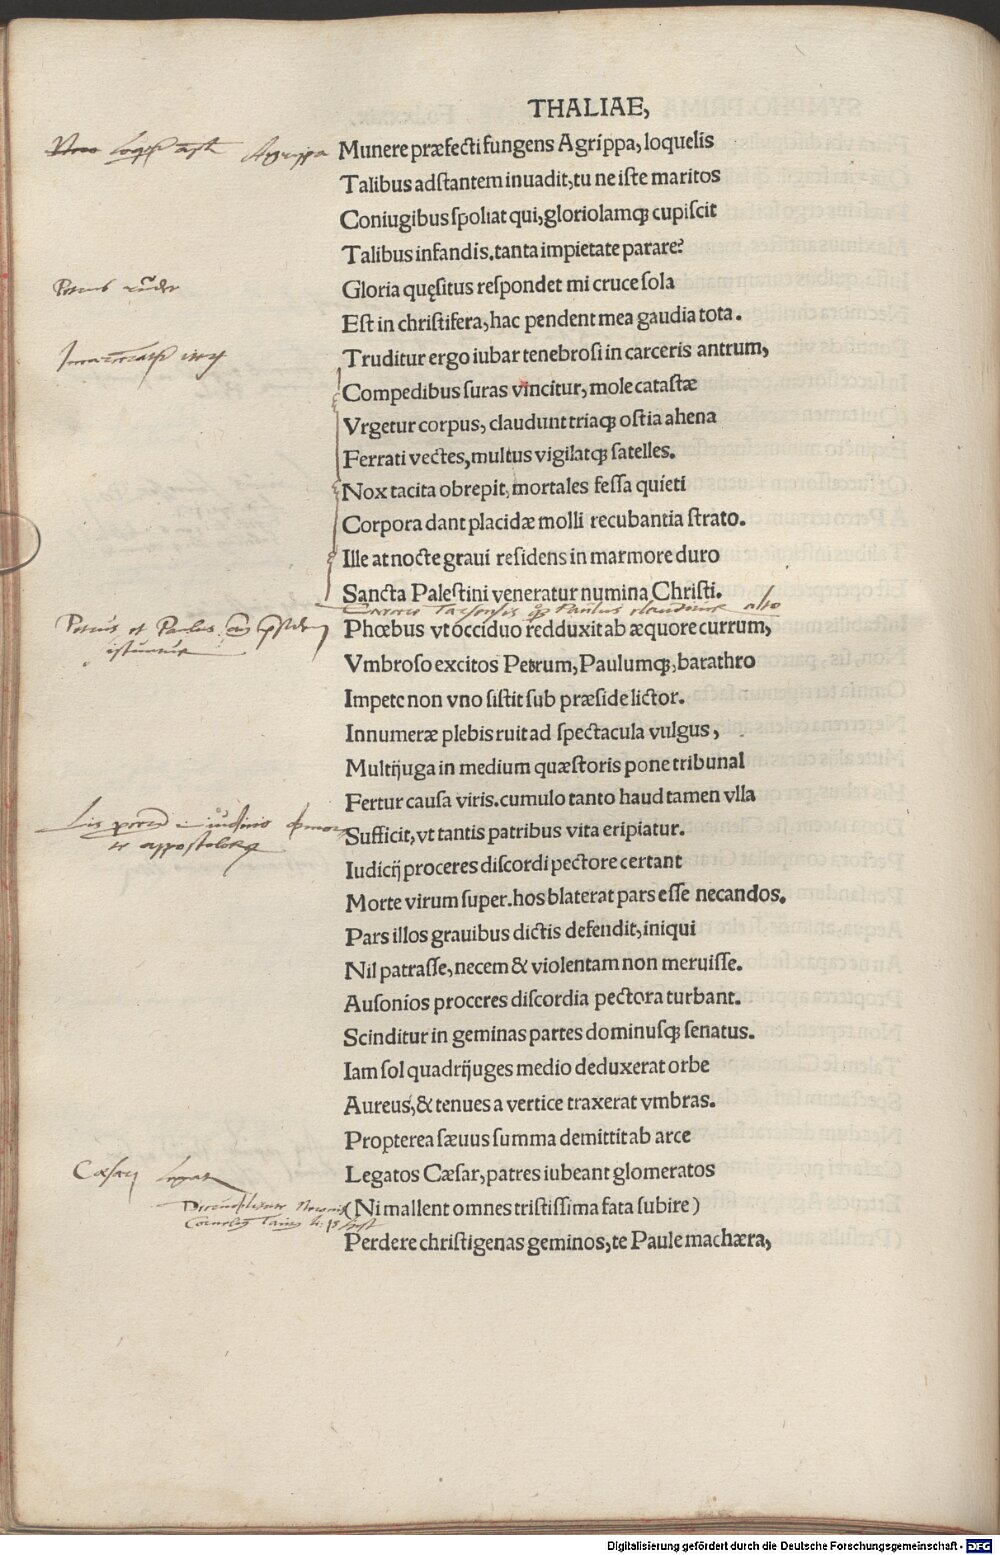 THALIAE,
Agrippa Munere præfecti fungens Agrippa, loquelis
Talibus adstantem inuadit, tu ne iste maritos
Coniugibus spoliat qui, gloriolamq; cupiscit
Talibus infandis. tanta impietate parare?
Petrus
Gloria quęsitus respondet mi cruce sola
Est in christifera, hac pendent mea gaudia tota.
Truditur ergo iubar tenebrosi in carceris antrum,
Compedibus suras vincitur, mole catastæ
Vrgetur corpus, claudunt triaq; ostia ahena
Ferrati vectes, multus vigilatq; satelles.
Nox tacita obrepit, mortales fessa quieti
Corpora dant placidæ molli recubantia strato.
Ille at nocte graui residens in marmore duro
Sancta Palestini veneratur numina Christi.
Paulus alto
Petrus et Paulus
Phœbus vt occiduo redduxit ab æquore currum,
Vmbroso excitos Petrum, Paulumq;, barathro
Impete non vno sistit sub præside lictor.
Innumeræ plebis ruit ad spectacula vulgus,
Multijuga in medium quæstoris pone tribunal
Fertur causa viris. cumulo tanto haud tamen vlla
Sufficit, vt tantis patribus vita eripiatur.
Iudicij proceres discordi pectore certant
Morte virum super. hos blaterat pars esse necandos.
Pars illos grauibus dictis defendit, iniqui
Nil patrasse, necem & violentam non meruisse.
Ausonios proceres discordia pectora turbant.
Scinditur in geminas partes dominusq; senatus.
Iam sol quadrijuges medio deduxerat orbe
Aureus, & tenues a vertice traxerat vmbras.
Propterea sæuus summa demittit ab arce
Legatos Cæsar, patres iubeant glomeratos
(Ni mallent omnes tristissima fata subire)
Perdere christigenas geminos, te Paule machæra,
Digitalisierung gefördert durch die Deutsche Forschungsgemeinschaft - DFG